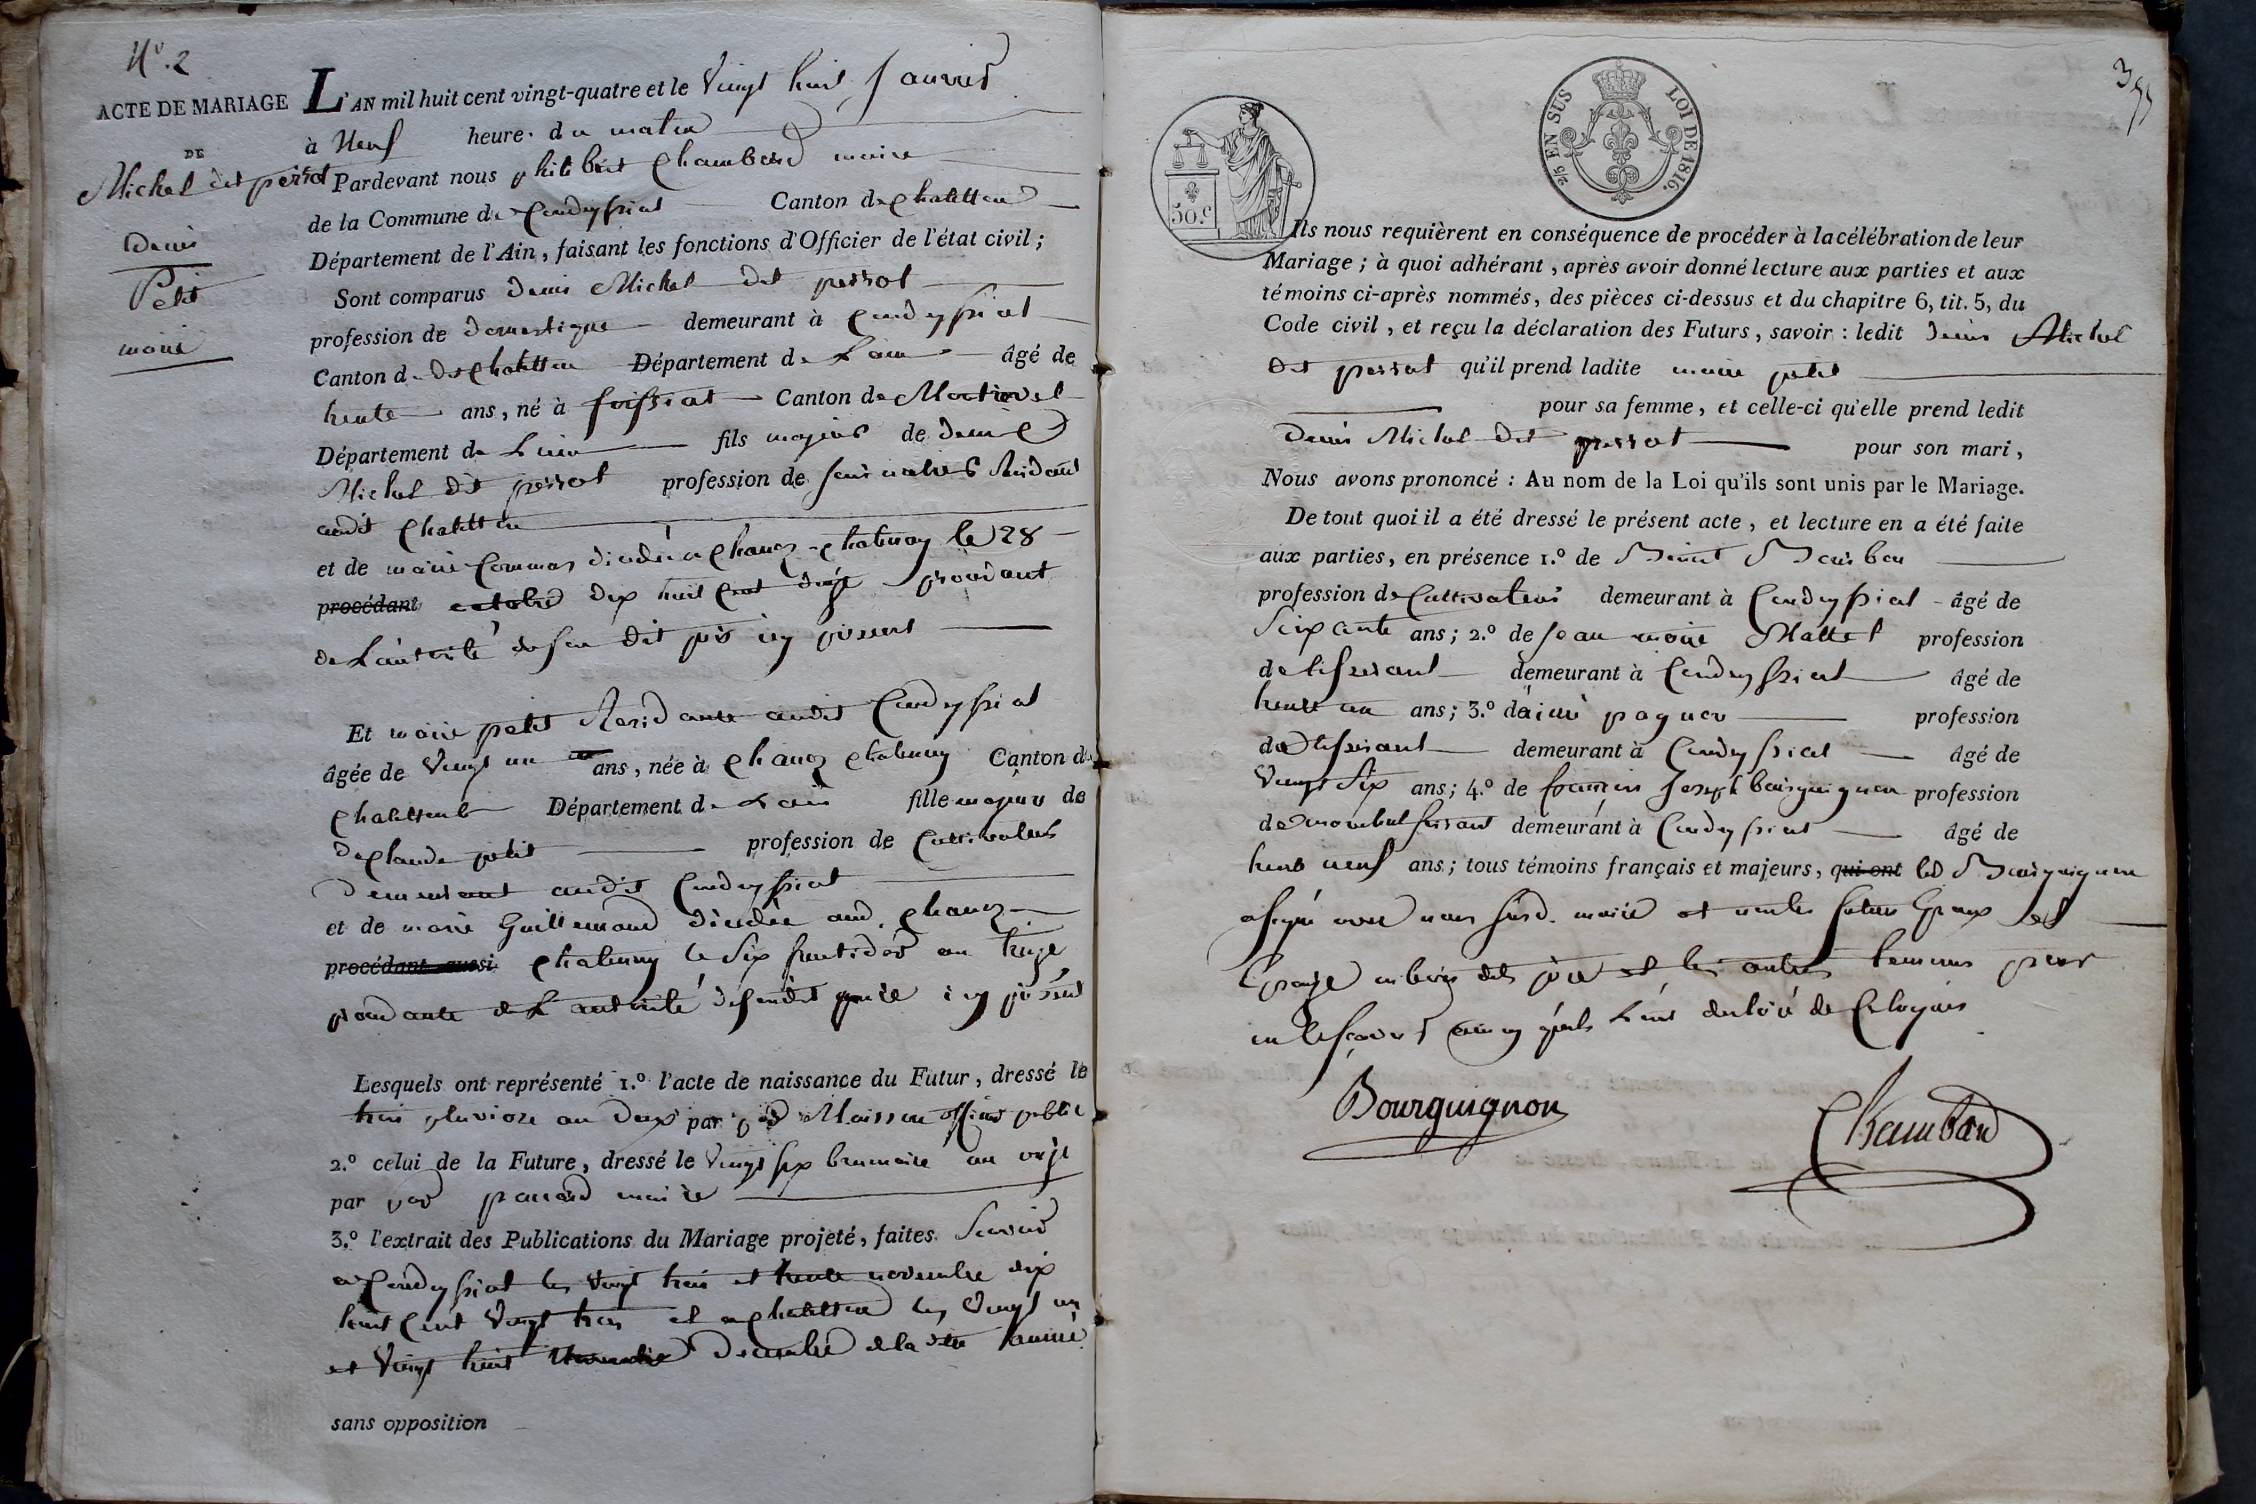 N°. 2
ACTE DE MARIAGE
DE
Michel dit perrot
Denis
Petit
marie
L'AN mil huit cent vingt-quatre et le vingt huit janvier
à Neuf heure. du matin
Pardevant nous philibert Chambard maire
de la Commune de Condeyssiat Canton de Chatillon
Département de l'Ain, faisant les fonctions d'Officier de l'état civil;
Sont comparus denis Michel dit perrot
profession de domestique demeurant à Condeyssiat
Canton de Chatillon Département de Lain âgé de
trente ans, né à foissiat Canton de Montrevel
Département de Lain fils majeur de denis
Michel dit perrot profession de journalier Résidant
audit Chatillon
et de marie Commas décédée a Chanoz-Chatenay le 28
procédant octobre dix huit cent procédant
de Lautorité de son dit père icy présent
Et marie petit Residante audit Condeyssiat
âgée de vingt un ans, née à Chanoz Chatenay Canton de
Chatillon Département de Lain fille majeure de
de Claude petit profession de Cultivateur
demeurant audit Condeyssiat
et de marie Guillemaud décédée aud. Chanoz
procédant aussi Chatenay le six fructidor an treize
procédante de L'autorité de sondit père icy présent
Lesquels ont représenté 1.º l'acte de naissance du Futur, dressé le
trois pluviose an deux par Moisson officier public
2.º celui de la Future, dressé le vingt six brumaire an onze
par maire
3.º l'extrait des Publications du Mariage projeté, faites. Savoir
a Condeyssiat les vingt trois et trente novembre dix
huit cent vingt trois et a Chatillon les vingt un
et vingt huit décembre de la dite année
sans opposition
355
2/5 EN SUS LOI DE 1816.
50.c
Ils nous requièrent en conséquence de procéder à la célébration de leur
Mariage; à quoi adhérant, après avoir donné lecture aux parties et aux
témoins ci-après nommés, des pièces ci-dessus et du chapitre 6, tit. 5, du
Code civil, et reçu la déclaration des Futurs, savoir: ledit denis Michel
dit perrot qu'il prend ladite marie petit
pour sa femme, et celle-ci qu'elle prend ledit
Denis Michel dit perrot pour son mari,
Nous avons prononcé: Au nom de la Loi qu'ils sont unis par le Mariage.
De tout quoi il a été dressé le présent acte, et lecture en a été faite
aux parties, en présence 1.º de Benoit Bourbon
profession de Cultivateur demeurant à Condeyssiat âgé de
soixante ans; 2.º de jean marie Mattet profession
de tisserant demeurant à Condeyssiat âgé de
trente un ans; 3.º d'aimé pagneu profession
de tisserant demeurant à Condeyssiat âgé de
vingt six ans; 4.º de françois joseph bourguignon profession
de demeurant à Condeyssiat âgé de
trente neuf ans; tous témoins français et majeurs, qui ont led Bourguignon
a signé avec nous susd. maire et non les futurs époux
dits père et les autres temoins pour
ne le sçavoir ainsi qu'ils l'ont déclaré de Ce requis
Bourguignon
Chambard